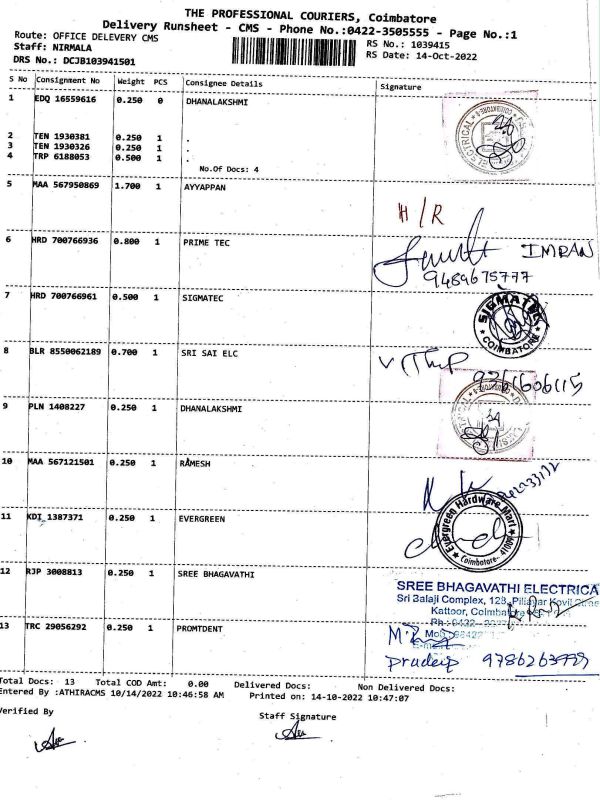 THE PROFESSIONAL COURIERS, Coimbatore
Delivery Runsheet - CMS - Phone No.:0422-3505555 - Page No.:1
Route: OFFICE DELEVERY CMS
RS No.: 1039415
Staff: NIRMALA
RS Date: 14-Oct-2022
DRS No.: DCJB103941501
S No Consignment No Weight PCS Consignee Details Signature
1 EDQ 16559616 0.250 0 DHANALAKSHMI
2 TEN 1930381 0.250 1 .
3 TEN 1930326 0.250 1 .
4 TRP 6188053 0.500 1 .
No.Of Docs: 4
5 MAA 567950869 1.700 1 AYYAPPAN
H/R
6 HRD 700766936 0.800 1 PRIME TEC
IMRAN
9489675777
7 HRD 700766961 0.500 1 SIGMATEC
SIGMATEC
COIMBATORE
8 BLR 8550062189 0.700 1 SRI SAI ELC
9 PLN 1408227 0.250 1 DHANALAKSHMI
10 MAA 567121501 0.250 1 RAMESH
11 KDI 1387371 0.250 1 EVERGREEN
Evergreen Hardware Mart
Coimbatore
12 RJP 3008813 0.250 1 SREE BHAGAVATHI
SREE BHAGAVATHI ELECTRICA
Sri Balaji Complex, 128, Pillaiyar Kovil
Kattoor, Coimbatore
13 TRC 29056292 0.250 1 PROMTDENT
pradeep
Total Docs: 13 Total COD Amt: 0.00 Delivered Docs: Non Delivered Docs:
Entered By :ATHIRACMS 10/14/2022 10:46:58 AM Printed on: 14-10-2022 10:47:07
Verified By
Staff Signature